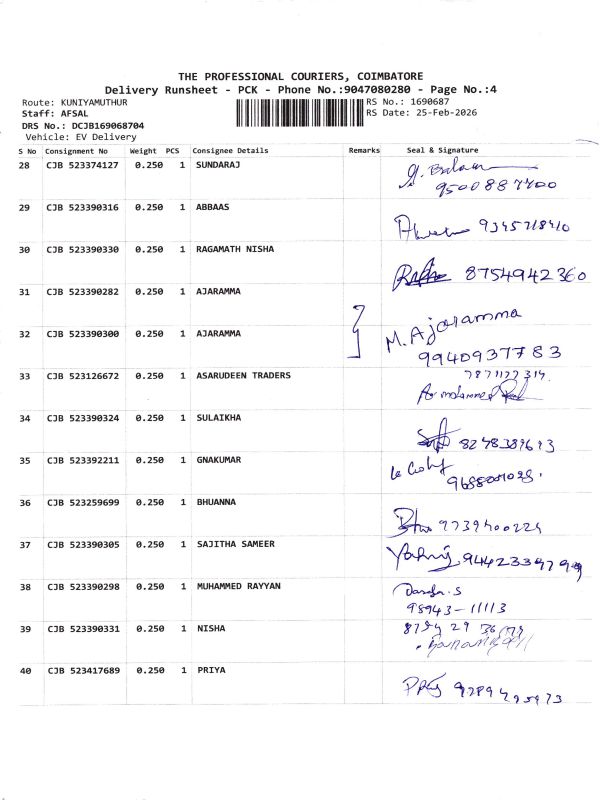 THE PROFESSIONAL COURIERS, COIMBATORE
Delivery Runsheet - PCK - Phone No.:9047080280 - Page No.:4
Route: KUNIYAMUTHUR RS No.: 1690687
Staff: AFSAL RS Date: 25-Feb-2026
DRS No.: DCJB169068704
Vehicle: EV Delivery
S No Consignment No Weight PCS Consignee Details Remarks Seal & Signature
28 CJB 523374127 0.250 1 SUNDARAJ
9500887700
29 CJB 523390316 0.250 1 ABBAAS
9345718410
30 CJB 523390330 0.250 1 RAGAMATH NISHA
8754942360
31 CJB 523390282 0.250 1 AJARAMMA
M. Ajaramma
32 CJB 523390300 0.250 1 AJARAMMA
9940937783
33 CJB 523126672 0.250 1 ASARUDEEN TRADERS
34 CJB 523390324 0.250 1 SULAIKHA
35 CJB 523392211 0.250 1 GNAKUMAR
36 CJB 523259699 0.250 1 BHUANNA
37 CJB 523390305 0.250 1 SAJITHA SAMEER
38 CJB 523390298 0.250 1 MUHAMMED RAYYAN
98943-11113
39 CJB 523390331 0.250 1 NISHA
40 CJB 523417689 0.250 1 PRIYA